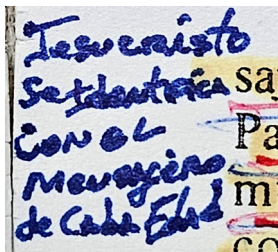 Jesucristo
Se Identifica
con el
Mensajero
de Cada Edad